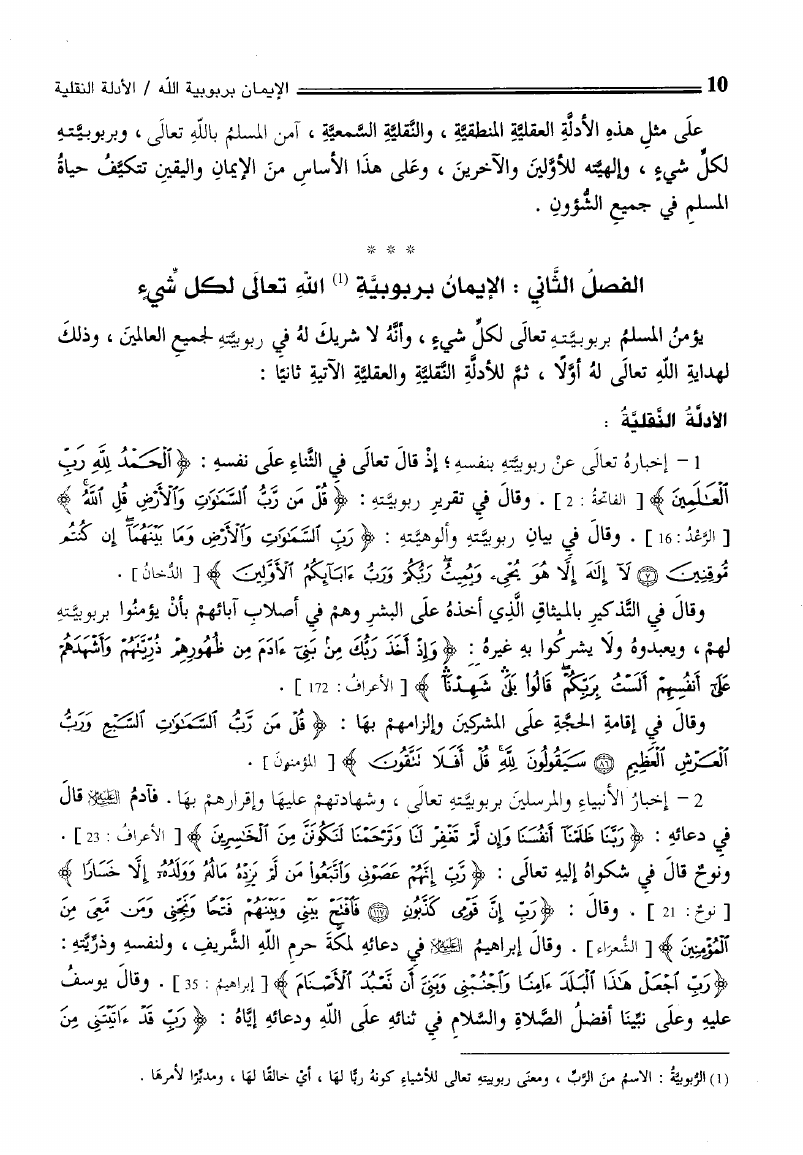 10 الإيمان بربوبية الله / الأدلة النقلية
علَى مثلِ هذهِ الأدلَّةِ العقليَّةِ المنطقيَّةِ ، والنَّقليَّةِ السَّمعيَّةِ ، آمن المسلمُ باللَّهِ تعالَى ، وبربوبيَّتهِ
لكلِّ شيءٍ ، وإلهيَّته للأوَّلينَ والآخرينَ ، وعَلى هذَا الأساسِ منَ الإيمانِ واليقينِ تتكيَّفُ حياةُ
المسلمِ في جميعِ الشُّؤونِ .
* * *
الفصلُ الثَّاني : الإيمانُ بربوبيَّةِ (1) اللهِ تعالَى لكل شَّيءٍ
يؤمنُ المسلمُ بربوبيَّتهِ تعالَى لكلِّ شيءٍ ، وأنَّهُ لا شريكَ لهُ في ربوبيَّتهِ لجميعِ العالمينَ ، وذلكَ
لهدايةِ اللَّهِ تعالَى لهُ أوَّلًا ، ثمَّ للأدلَّةِ النَّقليَّةِ والعقليَّةِ الآتيةِ ثانيًا :
الأدلَّةُ النَّقليَّةُ :
1 – إخبارهُ تعالَى عنْ ربوبيَّتهِ بنفسهِ ؛ إذْ قالَ تعالَى في الثَّناءِ علَى نفسهِ : ﴿ ٱلۡحَمۡدُ لِلَّهِ رَبِّ
ٱلۡعَٰلَمِينَ ﴾ [ الفاتحةُ : 2 ] . وقالَ في تقريرِ ربوبيَّتهِ : ﴿ قُلۡ مَن رَّبُّ ٱلسَّمَٰوَٰتِ وَٱلۡأَرۡضِ قُلِ ٱللَّهُۚ ﴾
[ الرَّعْدُ : 16 ] . وقالَ في بيانِ ربوبيَّتهِ وألوهيَّتهِ : ﴿ رَبِّ ٱلسَّمَٰوَٰتِ وَٱلۡأَرۡضِ وَمَا بَيۡنَهُمَآۖ إِن كُنتُم
مُّوقِنِينَ ۝٧ لَآ إِلَٰهَ إِلَّا هُوَ يُحۡيِۦ وَيُمِيتُۖ رَبُّكُمۡ وَرَبُّ ءَابَآئِكُمُ ٱلۡأَوَّلِينَ ﴾ [ الدُّخانُ ] .
وقالَ في التَّذكيرِ بالميثاقِ الَّذي أخذهُ علَى البشرِ وهمْ في أصلابِ آبائهمْ بأنْ يؤمنُوا بربوبيَّتهِ
لهمْ ، ويعبدوهُ ولَا يشركُوا بهِ غيرهُ : ﴿ وَإِذۡ أَخَذَ رَبُّكَ مِنۢ بَنِيٓ ءَادَمَ مِن ظُهُورِهِمۡ ذُرِّيَّتَهُمۡ وَأَشۡهَدَهُمۡ
عَلَىٰٓ أَنفُسِهِمۡ أَلَسۡتُ بِرَبِّكُمۡۖ قَالُواْ بَلَىٰ شَهِدۡنَآۚ ﴾ [ الأعرافُ : 172 ] .
وقالَ في إقامةِ الحجَّةِ علَى المشركينَ وإلزامهمْ بهَا : ﴿ قُلۡ مَن رَّبُّ ٱلسَّمَٰوَٰتِ ٱلسَّبۡعِ وَرَبُّ
ٱلۡعَرۡشِ ٱلۡعَظِيمِ ۝٨٦ سَيَقُولُونَ لِلَّهِۚ قُلۡ أَفَلَا تَتَّقُونَ ﴾ [ المؤمنونَ ] .
2 – إخبارُ الأنبياءِ والمرسلينَ بربوبيَّتهِ تعالَى ، وشهادتهمْ عليهَا وإقرارهمْ بهَا . فآدمُ عليه السلام قالَ
في دعائهِ : ﴿ رَبَّنَا ظَلَمۡنَآ أَنفُسَنَا وَإِن لَّمۡ تَغۡفِرۡ لَنَا وَتَرۡحَمۡنَا لَنَكُونَنَّ مِنَ ٱلۡخَٰسِرِينَ ﴾ [ الأعرافُ : 23 ] .
ونوحٌ قالَ في شكواهُ إليهِ تعالَى : ﴿ رَّبِّ إِنَّهُمۡ عَصَوۡنِي وَٱتَّبَعُواْ مَن لَّمۡ يَزِدۡهُ مَالُهُۥ وَوَلَدُهُۥٓ إِلَّا خَسَارٗا ﴾
[ نوحٌ : 21 ] . وقالَ : ﴿ رَبِّ إِنَّ قَوۡمِي كَذَّبُونِ ۝١١٧ فَٱفۡتَحۡ بَيۡنِي وَبَيۡنَهُمۡ فَتۡحٗا وَنَجِّنِي وَمَن مَّعِيَ مِنَ
ٱلۡمُؤۡمِنِينَ ﴾ [ الشُّعراء ] . وقالَ إبراهيمُ عليه السلام في دعائهِ لمكَّةَ حرمِ اللَّهِ الشَّريفِ ، ولنفسهِ وذرِّيَّتهِ :
﴿ رَبِّ ٱجۡعَلۡ هَٰذَا ٱلۡبَلَدَ ءَامِنٗا وَٱجۡنُبۡنِي وَبَنِيَّ أَن نَّعۡبُدَ ٱلۡأَصۡنَامَ ﴾ [ إبراهيمُ : 35 ] . وقالَ يوسفُ
عليهِ وعلَى نبيِّنَا أفضلُ الصَّلاةِ والسَّلامِ في ثنائهِ علَى اللَّهِ ودعائهِ إيَّاهُ : ﴿ رَبِّ قَدۡ ءَاتَيۡتَنِي مِنَ
(1) الرُّبوبيَّةُ : الاسمُ منَ الرَّبِّ ، ومعنَى ربوبيتهِ تعالى للأشياءِ كونهُ ربًّا لهَا ، أيْ خالقًا لهَا ، ومدبِّرًا لأمرهَا .